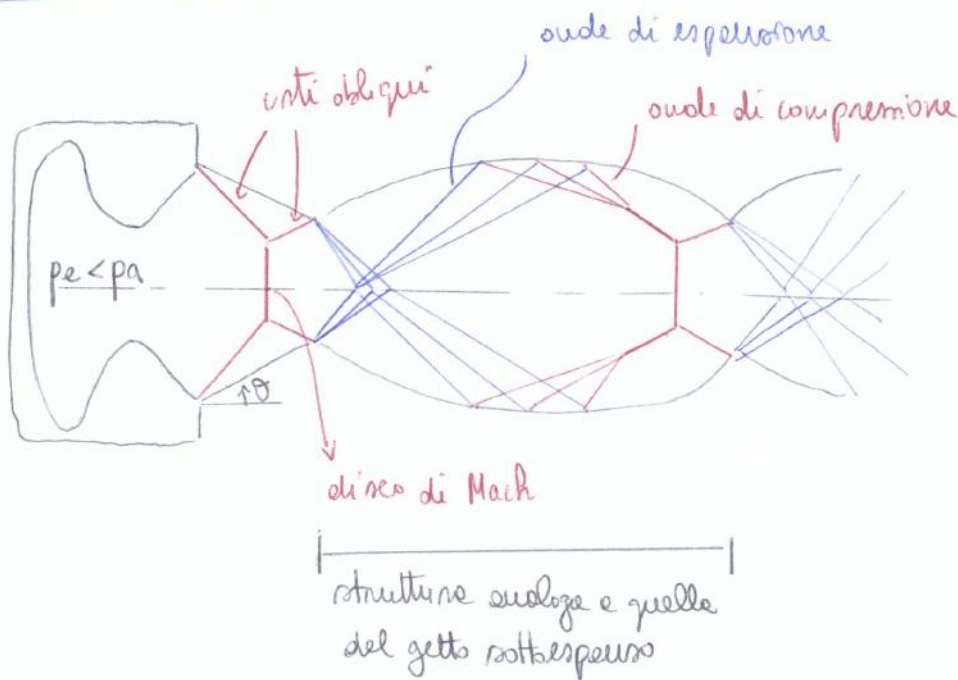 onde di espansione
urti obliqui
onde di compressione
pe < pa
θ
disco di Mach
struttura analoga a quella
del getto sottoespanso